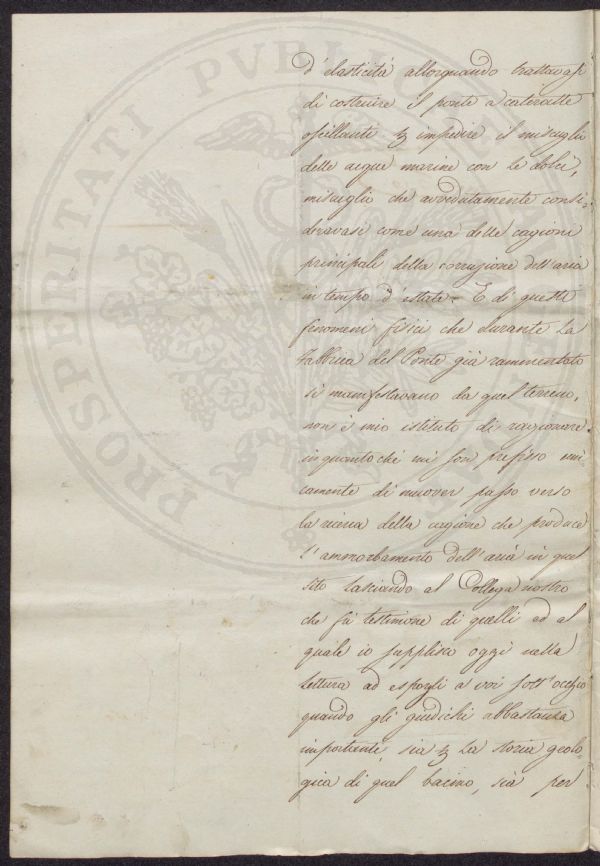 d'elasticità allorquando trattavasi
di costruire il ponte a cateratte
oscillanti p impedire il miscuglio
delle acque marine con le dolci,
miscuglio che avvedutamente consi-
deravasi come una delle cagioni
principali della corruzione dell'aria
in tempo d'estate. E di questi
fenomeni fisici che durante la
Fabbrica del Ponte già rammentato
si manifestavano da quel terreno,
non è mio istituto di ragionare
inquantoché mi son prefisso uni-
camente di muover passo verso
la ricerca della cagione che produce
l'ammorbamento dell'aria in quel
sito lasciando al Collega nostro
che fù testimone di quelli ed al
quale io supplisco oggi nella
lettura ad esporli a voi sott'occhio
quando gli giudichi abbastanza
importanti, sia p la storia geolo-
gica di quel bacino, sia per
PROSPERITATI PVBLI